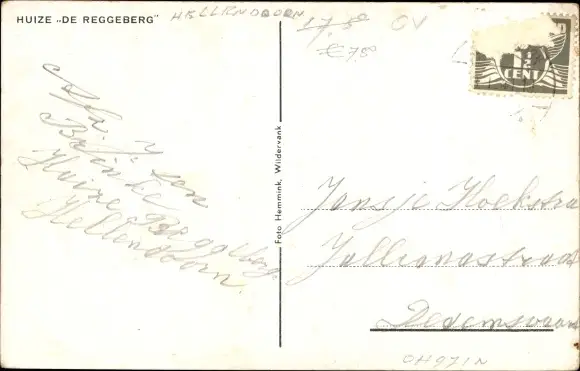 HUIZE „DE REGGEBERG"
HELLENDOORN
17,50
€7,50
CV
1/2
CENT
Afz. J. sen
Brinke
Huize Reggeberg.
Hellendoorn.
Foto Hemmink, Wildervank
Jansje Hoekstra
Jullianastraat
Dedemsvaart
OH971N